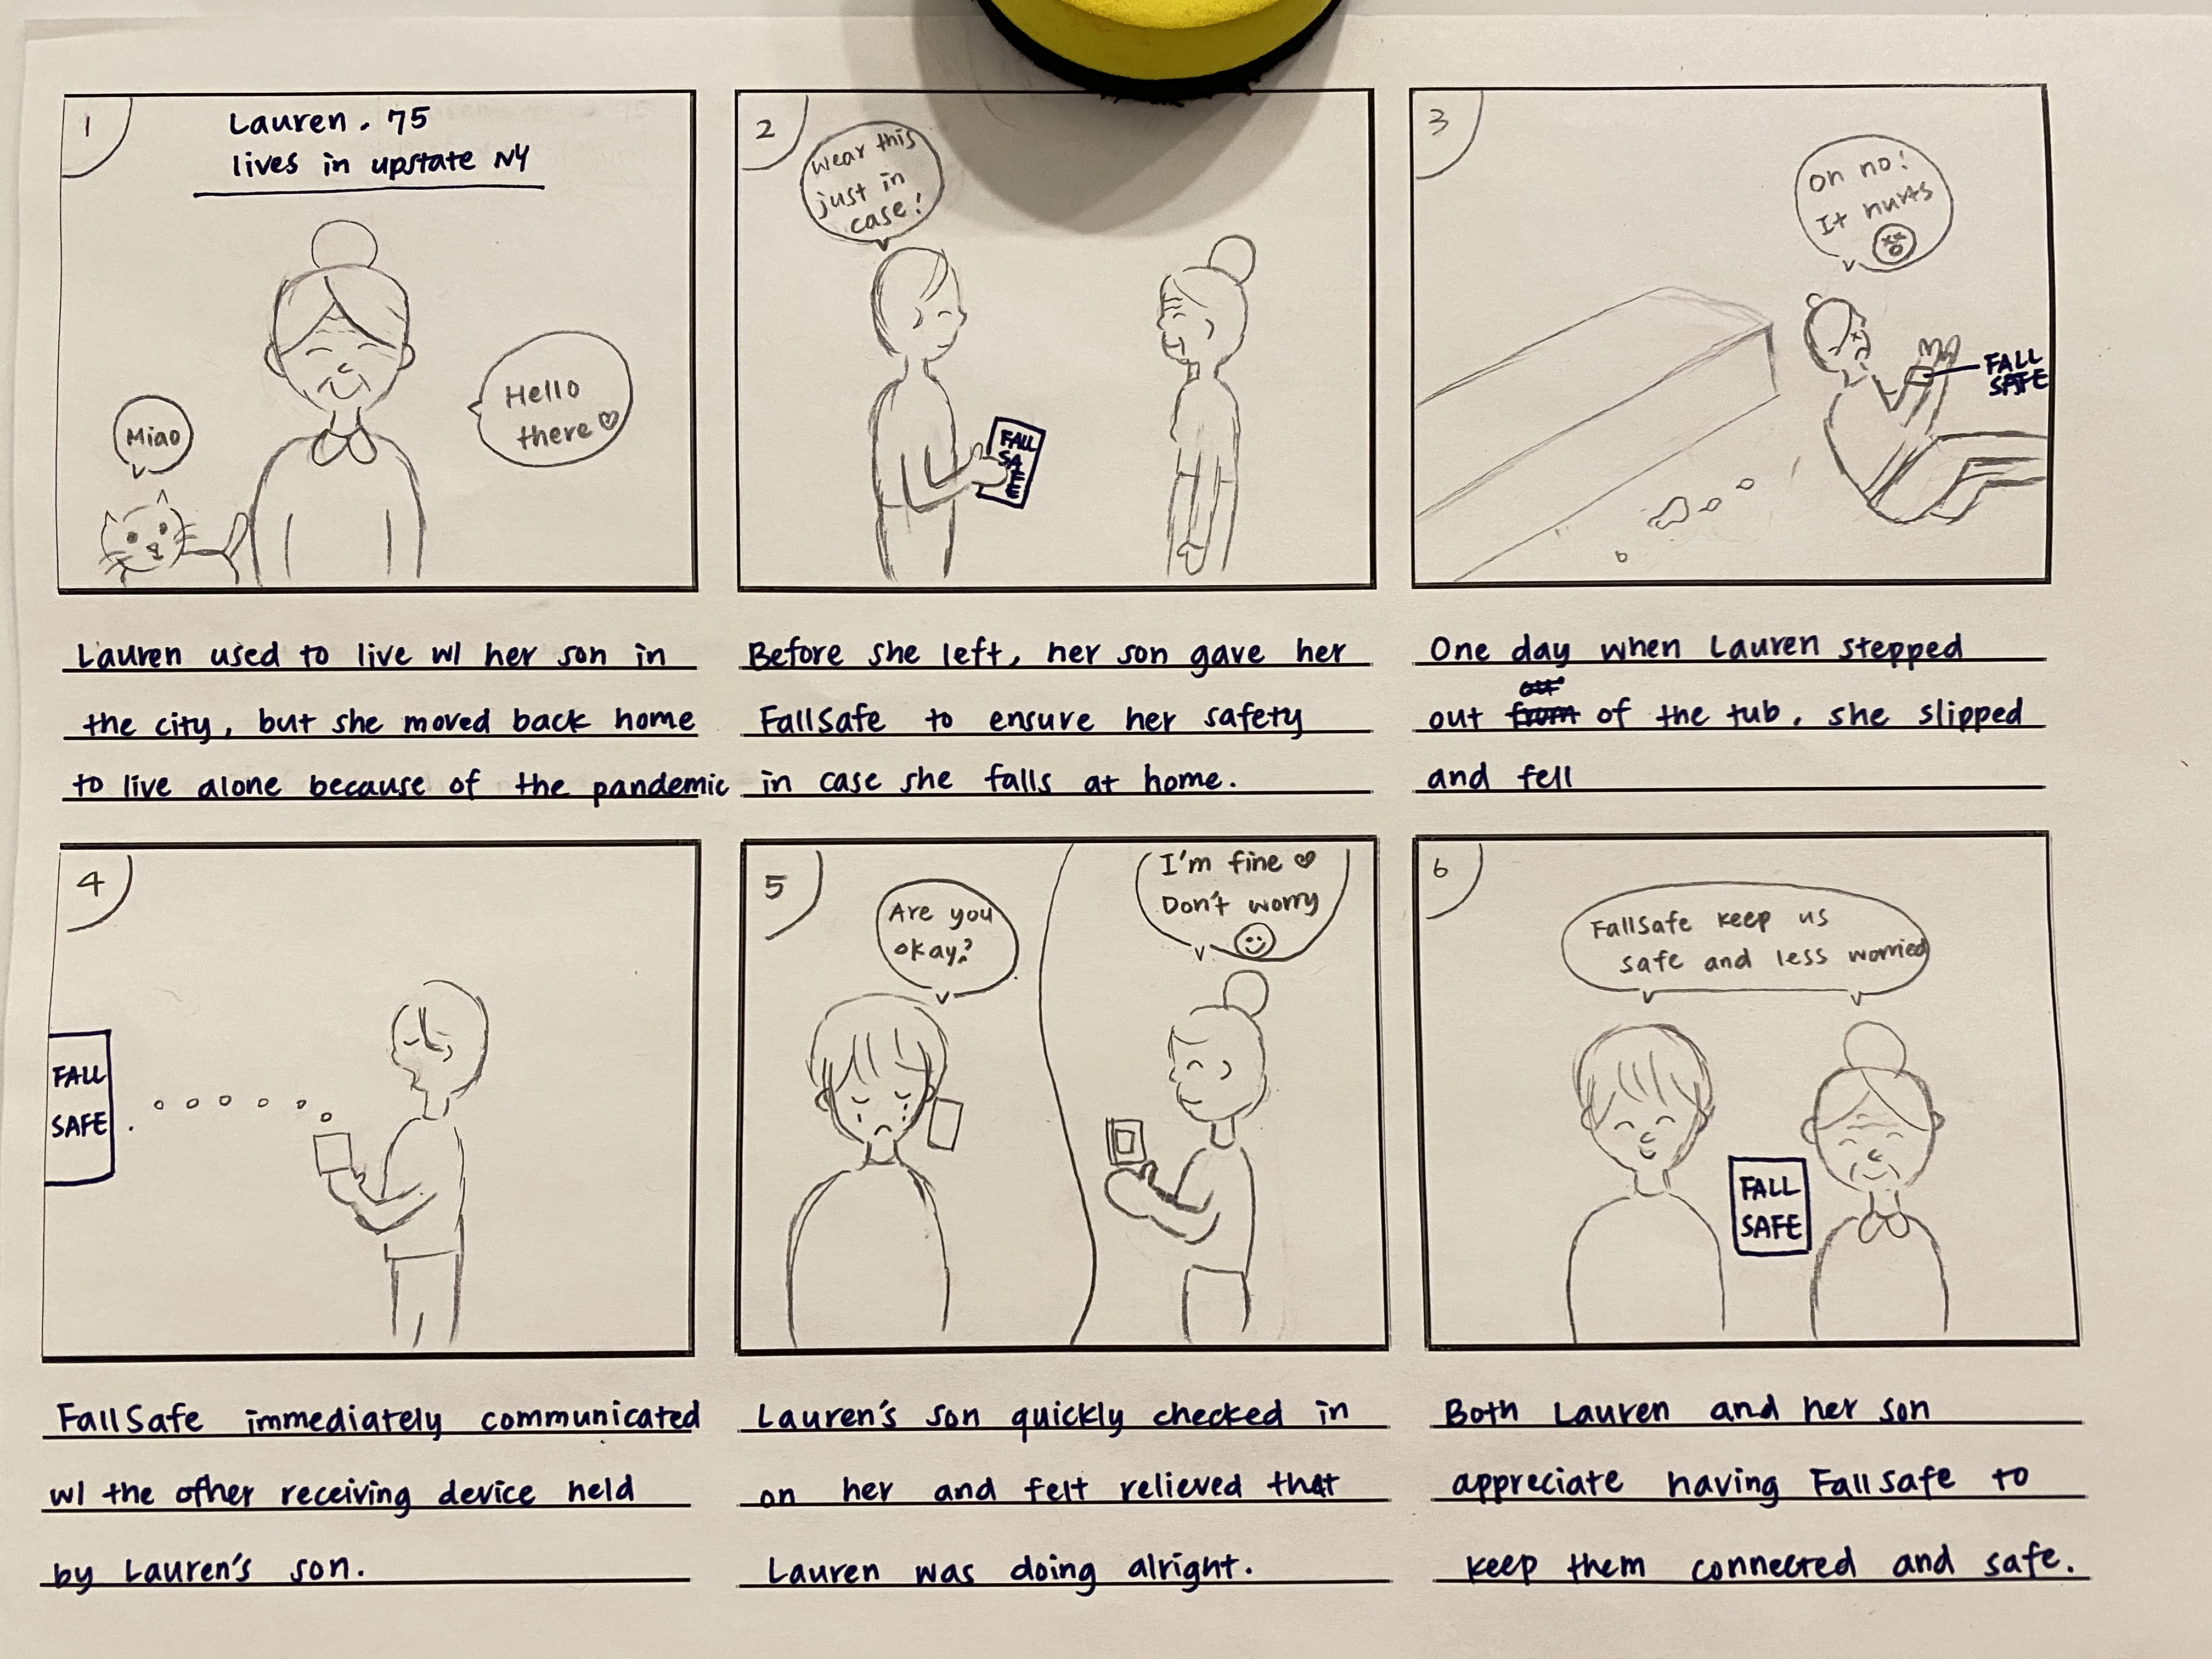 1
Lauren. 75
lives in upstate NY
Hello
there
Miao
Lauren used to live w/ her son in
the city, but she moved back home
to live alone because of the pandemic
2
Wear this
just in
case!
FALL
SAFE
Before she left, her son gave her
FallSafe to ensure her safety
in case she falls at home.
3
Oh no!
It hurts
FALL
SAFE
One day when Lauren stepped
out of the tub, she slipped
and fell
4
FALL
SAFE
FallSafe immediately communicated
w/ the other receiving device held
by Lauren's son.
5
Are you
okay?
I'm fine
Don't worry
Lauren's son quickly checked in
on her and felt relieved that
Lauren was doing alright.
6
FallSafe keep us
safe and less worried
FALL
SAFE
Both Lauren and her son
appreciate having FallSafe to
keep them connected and safe.